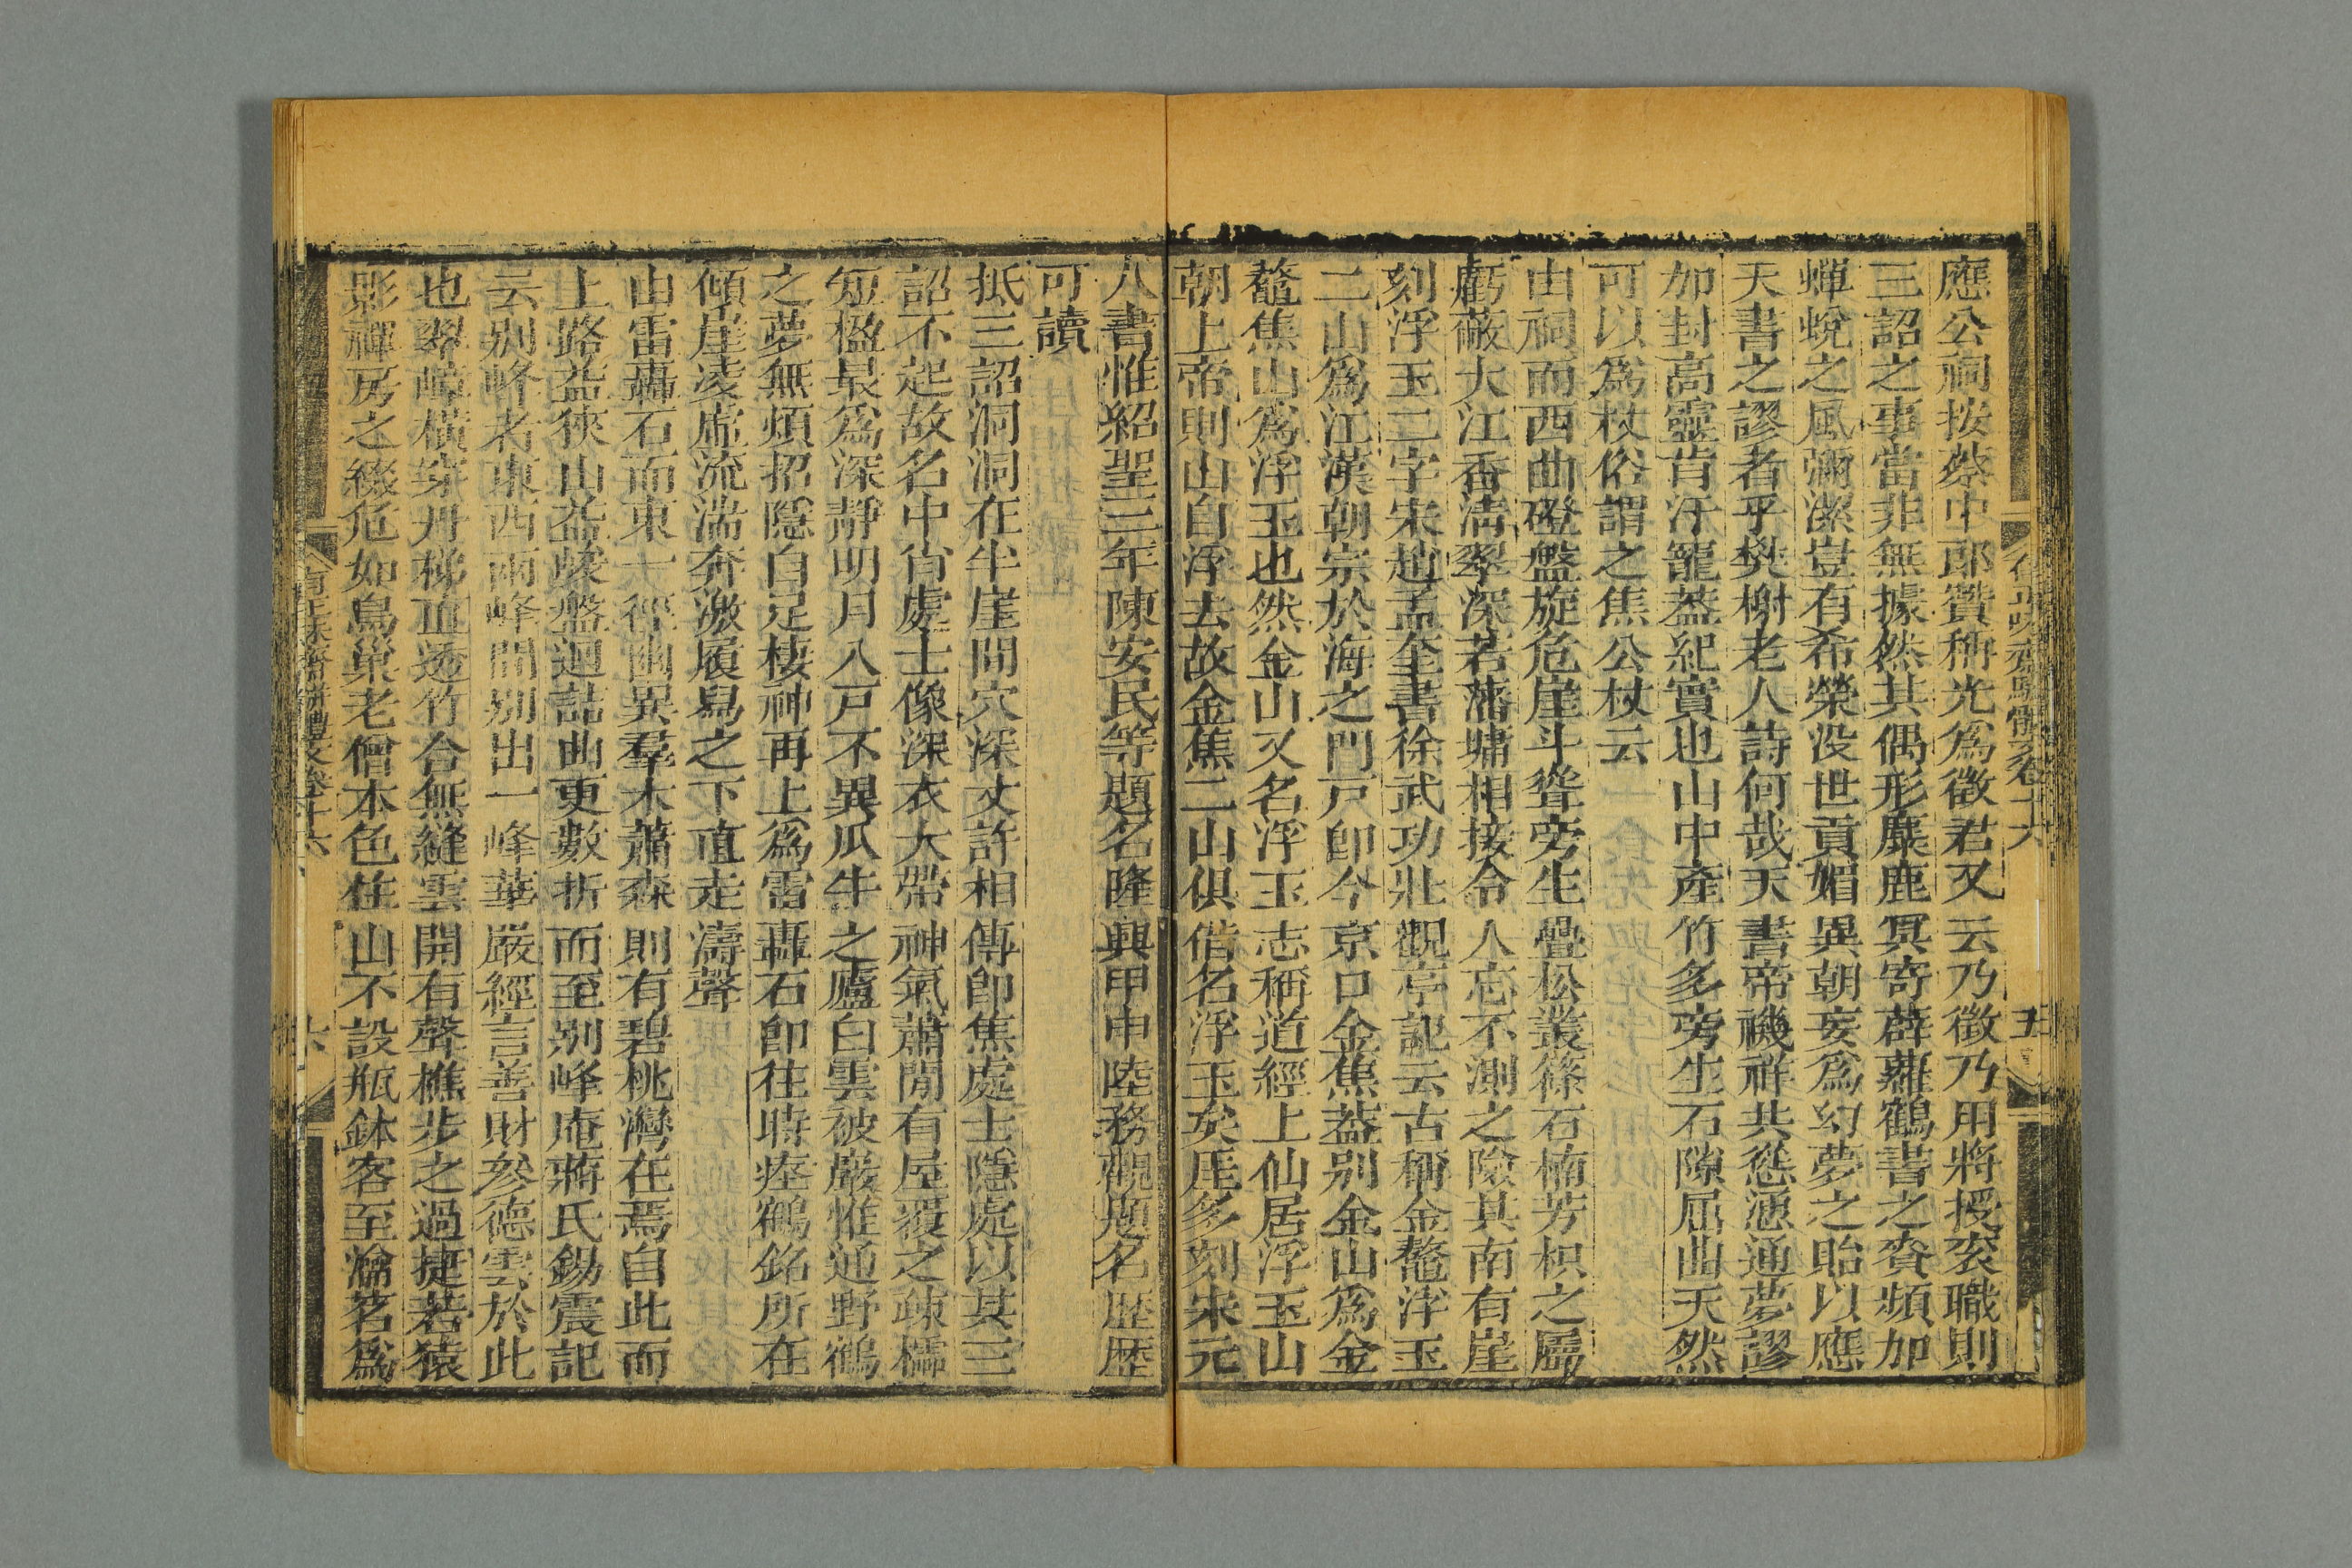 應公祠按蔡中郎贊稱光爲徵君又云乃徵乃用將授衮職則
三詔之事當非無據然其偶形麋鹿冥寄薜蘿鶴書之賚頻加
蟬蛻之風彌潔豈有希榮没世貢媚異朝妄爲幻夢之貽以應
天書之謬者乎樊榭老人詩何哉天書帝禨祥共慫慂通夢謬
加封高靈肯汙寵蓋紀實也山中產竹多旁生石隙屈曲天然
可以爲杖俗謂之焦公杖云
由祠而西曲磴盤旋危崖斗聳旁生疊松叢篠石楠芳枳之屬
虧蔽大江香淸翠深若藩墉相接令人忘不測之險其南有崖
刻浮玉二字宋趙孟奎書徐武功壯觀亭記云古稱金鼇浮玉
二山爲江漢朝宗於海之門戸卽今京口金焦蓋别金山爲金
鼇焦山爲浮玉也然金山又名浮玉志稱道經上仙居浮玉山
朝上帝則山自浮去故金焦二山俱偕名浮玉矣厓多刻宋元
八書惟紹聖三年陳安民等題名隆興甲申陸務觀題名歴歴
可讀
抵三詔洞洞在半崖間穴深丈許相傳卽焦處士隱處以其三
詔不起故名中肖處士像深衣大帶神氣蕭閒有屋覆之疎櫺
短楹最爲深靜明月入戸不異瓜牛之廬白雲被巖惟通野鶴
之夢無煩招隱自足棲神再上爲雷轟石卽往時瘞鶴銘所在
傾崖凌虚流湍奔激履舄之下直走濤聲
由雷轟石而東一徑幽異羣木蕭森則有碧桃灣在焉自此而
上路益狹山益峻盤迴詰曲更數折而至别峰庵蔣氏錫震記
云别峰者東西兩峰間别出一峰華嚴經言善財參德雲於此
也翠嶂橫穿丹梯直透竹合無縫雲開有聲樵步之過捷若猿
影禪房之綴危如鳥巢老僧本色住山不設瓶鉢客至瀹茗爲
有正味齋駢體文卷十六
六
有正味齋駢體文卷十六
五